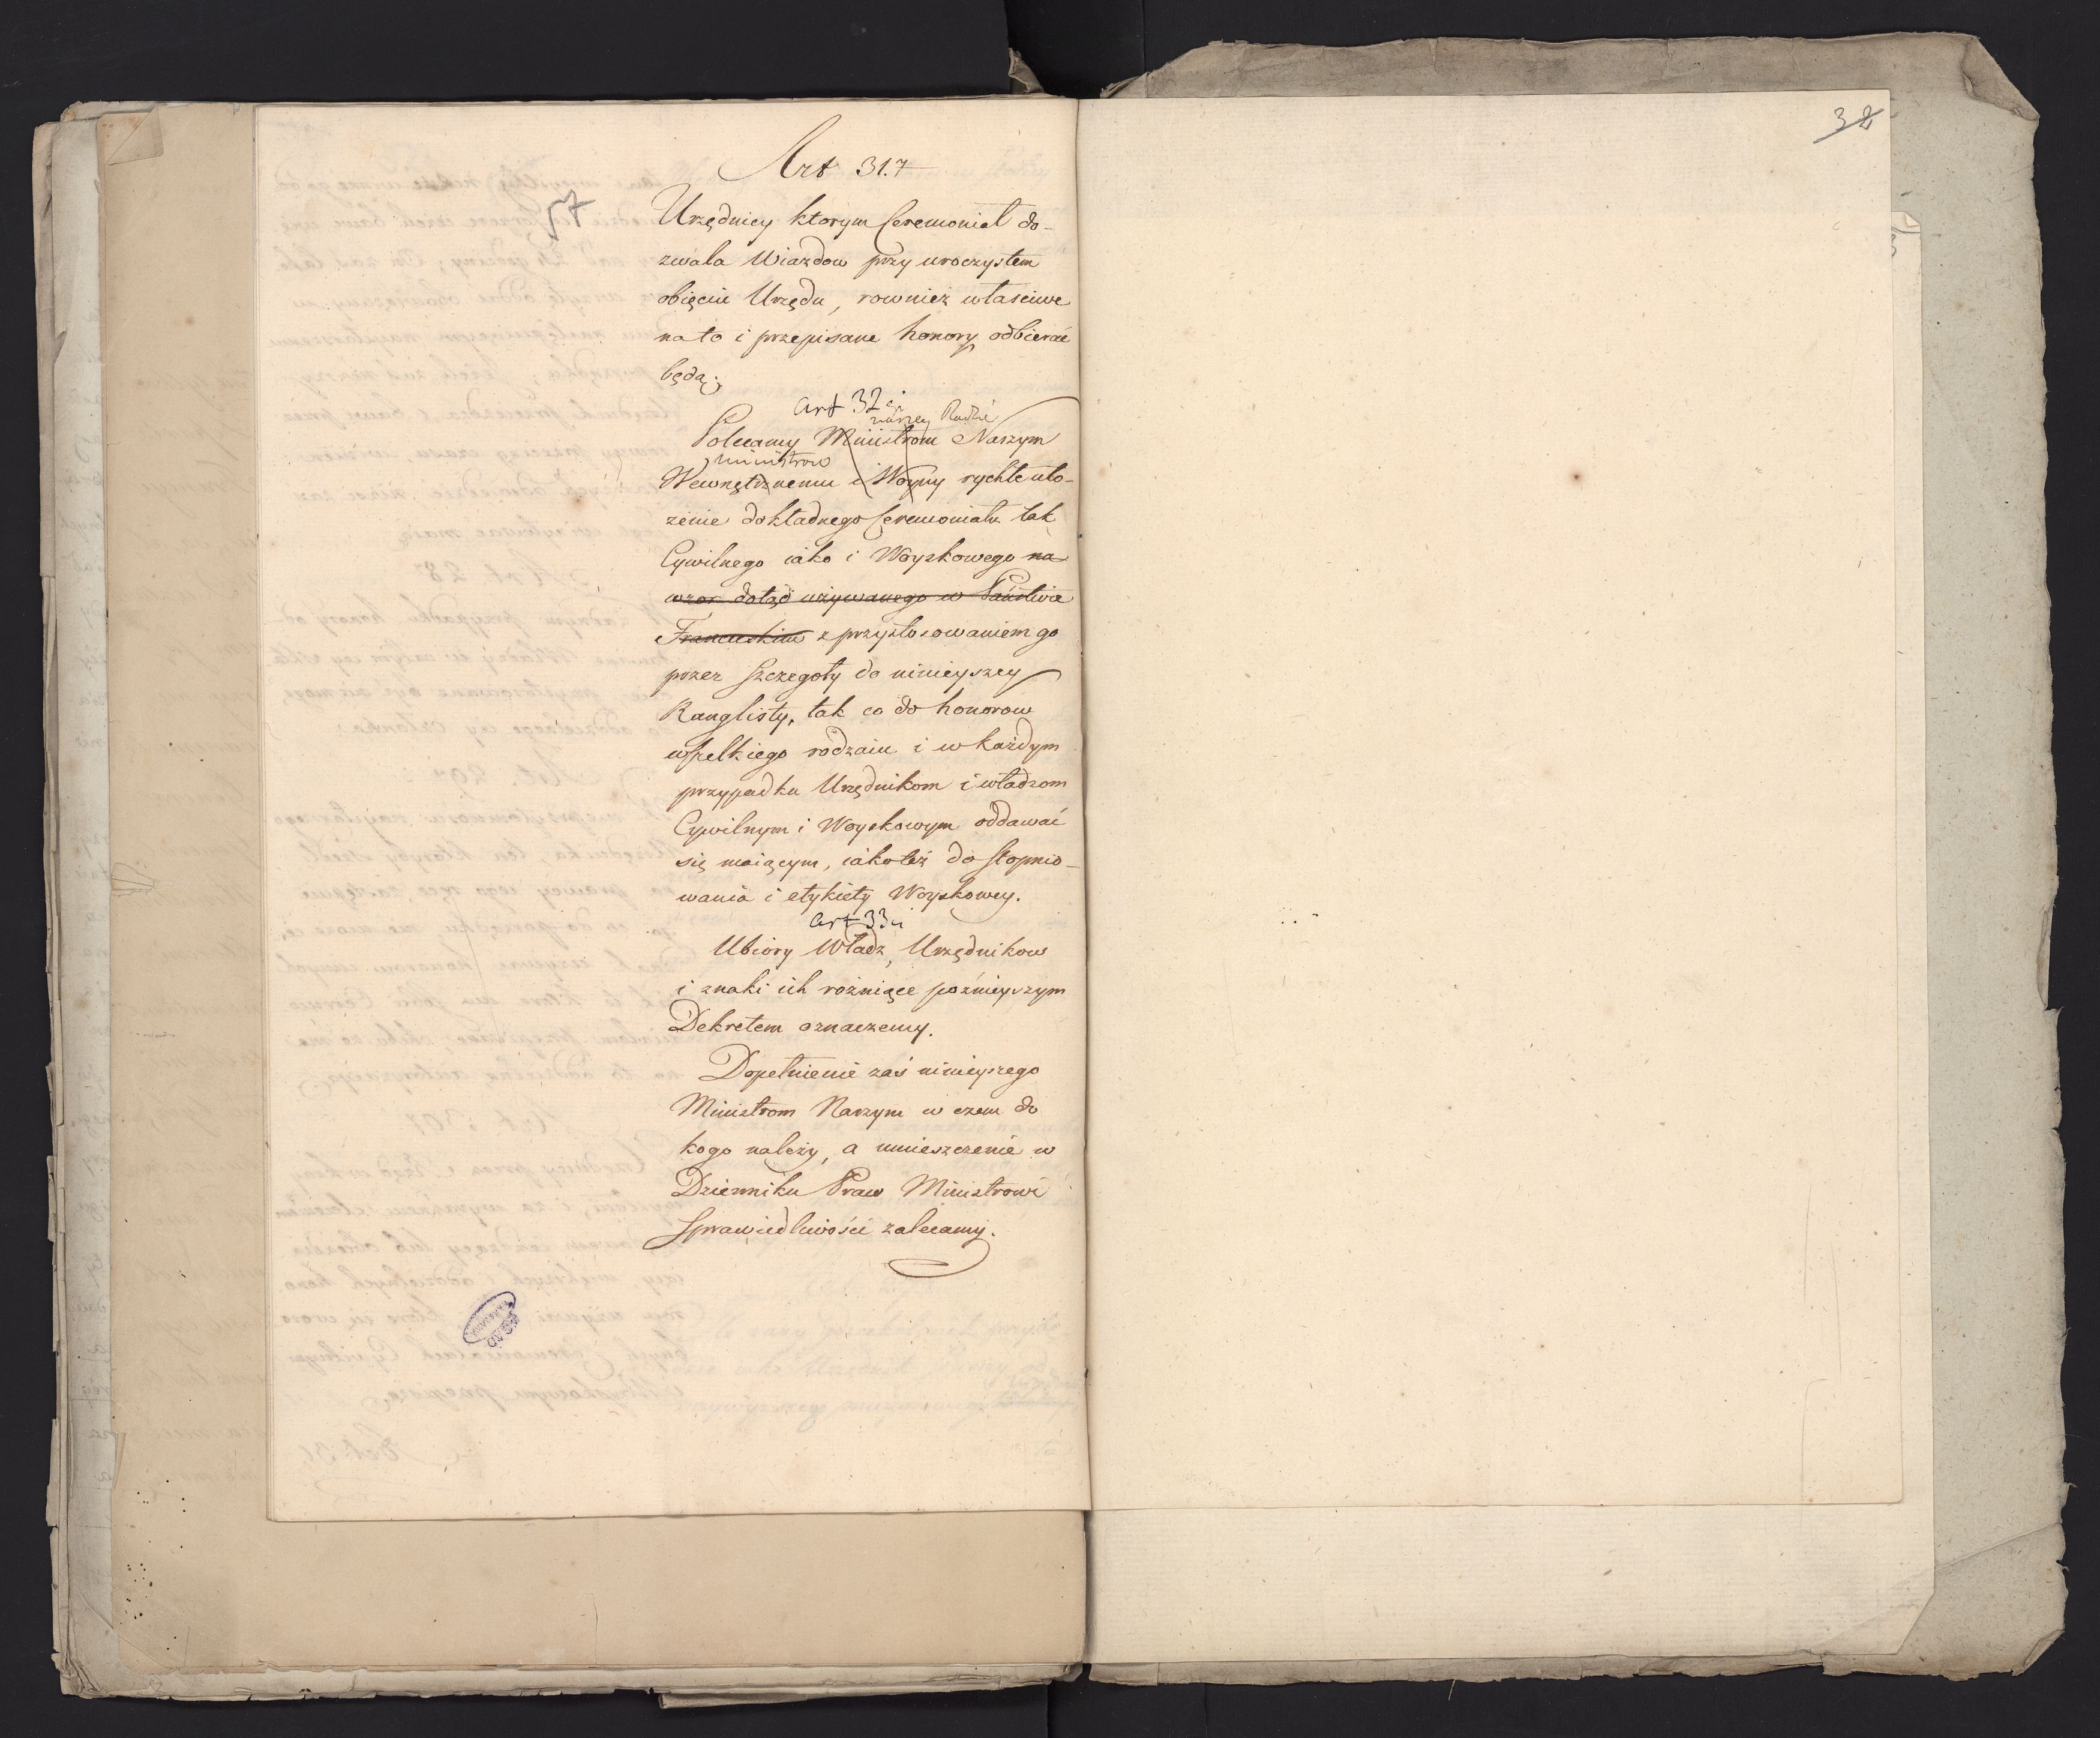 Art 31.
57
Urzędnicy ktorym Ceremonial do-
zwala Wiazdow przy uroczystem
obięciu Urzędu, rownież właściwe
na to i przepisane honory odbierać
będą.
Art 32
naszey Radzie
Polecamy Ministrom Naszym
Ministrow
Wewnętrznemu i Woyny rychłe uło-
zenie dokładnego Ceremoniału tak
Cywilnego iako i Woyskowego na
wzor dotąd używanego w Państwie
Francuskim z przystosowaniem go
przez szczegoły do ninieyszey
Ranglisty, tak co do honorow
wszelkiego rodzaiu i w każdym
przypadku Urzędnikom i władzom
Cywilnym i Woyskowym oddawać
się maiącym, iakoteż do stopnio-
wania i etykiety Woyskowey.
Art 33
Ubiory Władz, Urzędnikow
i znaki ich rożniące poźnieyszym
Dekretem oznaczemy.
Dopełnienie zaś ninieyszego
Ministrom Naszym w czem do
kogo należy, a umieszczenie w
Dzienniku Praw Ministrowi
Sprawiedliwości zalecamy.
32